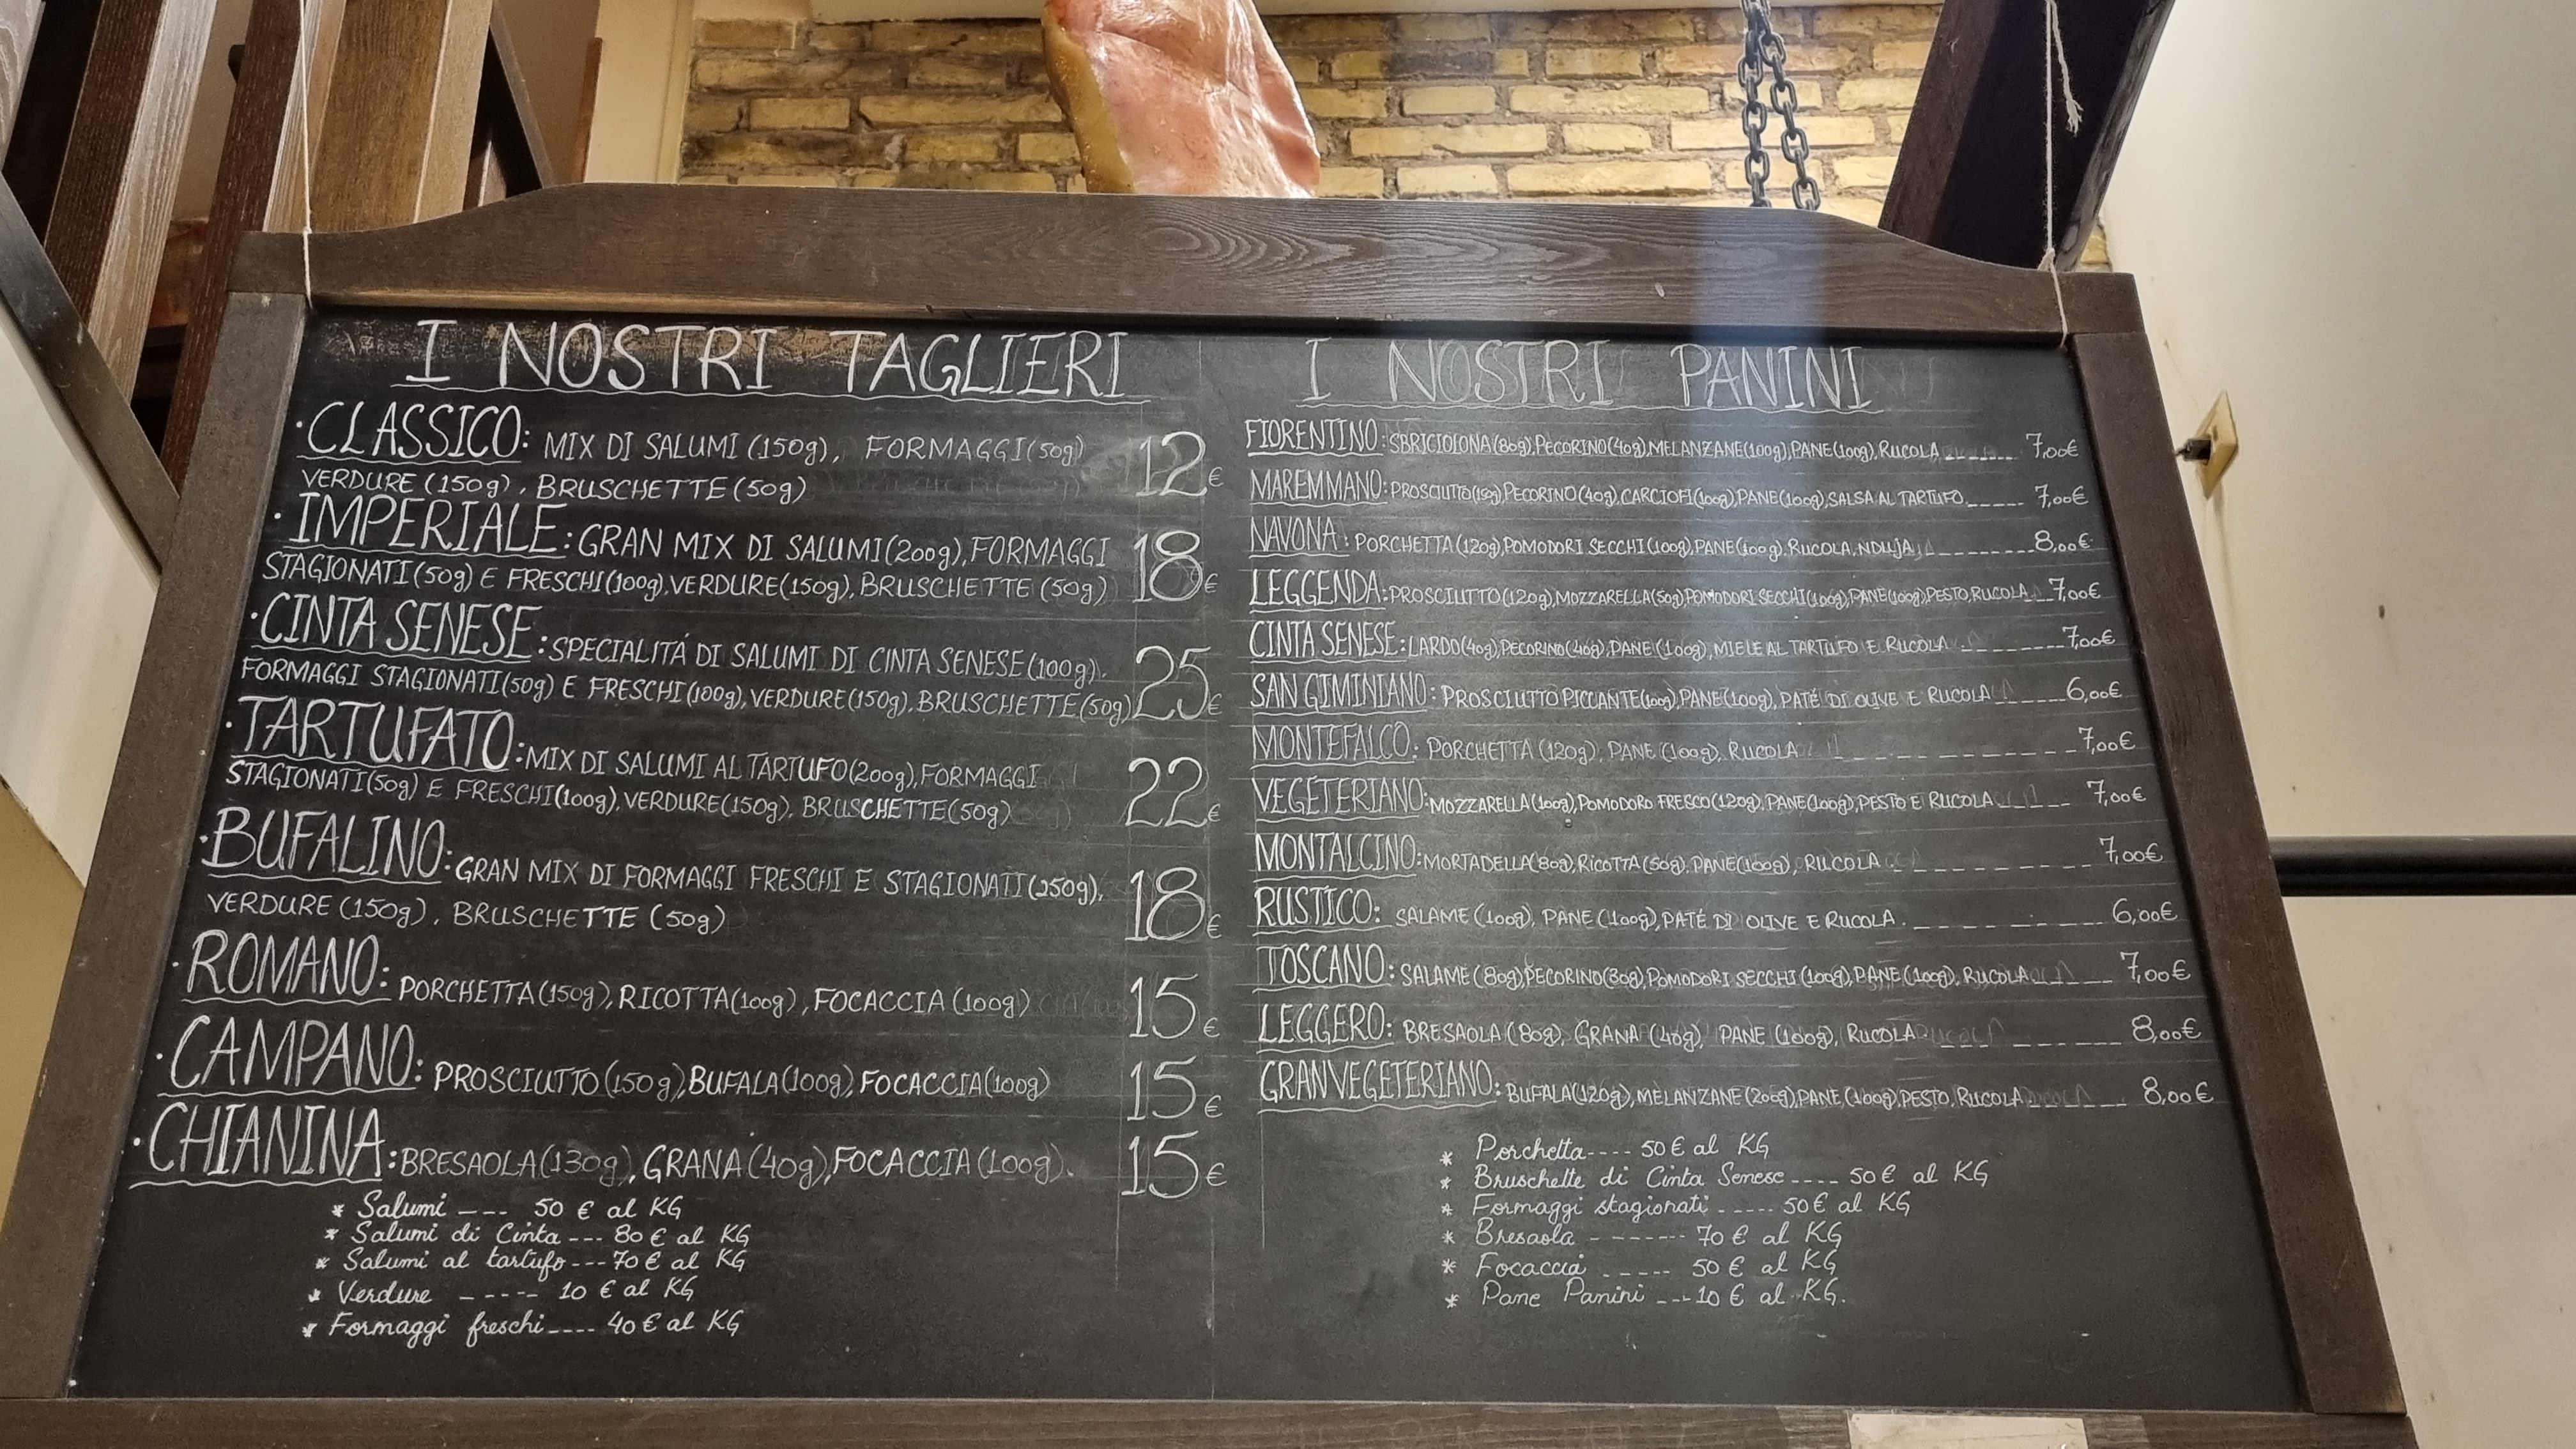 I NOSTRI TAGLIERI
· CLASSICO: MIX DI SALUMI (150g), FORMAGGI (50g) 12€
VERDURE (150g), BRUSCHETTE (50g)
· IMPERIALE: GRAN MIX DI SALUMI (200g), FORMAGGI 18€
STAGIONATI (50g) E FRESCHI (100g), VERDURE (150g), BRUSCHETTE (50g)
· CINTA SENESE: SPECIALITÁ DI SALUMI DI CINTA SENESE (100g), 25€
FORMAGGI STAGIONATI (50g) E FRESCHI (100g), VERDURE (150g), BRUSCHETTE (50g)
· TARTUFATO: MIX DI SALUMI AL TARTUFO (200g), FORMAGGI 22€
STAGIONATI (50g) E FRESCHI (100g), VERDURE (150g), BRUSCHETTE (50g)
· BUFALINO: GRAN MIX DI FORMAGGI FRESCHI E STAGIONATI (250g), 18€
VERDURE (150g), BRUSCHETTE (50g)
· ROMANO: PORCHETTA (150g), RICOTTA (100g), FOCACCIA (100g) 15€
· CAMPANO: PROSCIUTTO (150g), BUFALA (100g), FOCACCIA (100g) 15€
· CHIANINA: BRESAOLA (130g), GRANA (40g), FOCACCIA (100g). 15€
* Salumi --- 50 € al KG
* Salumi di Cinta --- 80 € al KG
* Salumi al tartufo --- 70 € al KG
* Verdure ----- 10 € al KG
* Formaggi freschi ---- 40 € al KG
I NOSTRI PANINI
FIORENTINO: SBRICIOLONA (80g), PECORINO (40g), MELANZANE (100g), PANE (100g), RUCOLA ------ 7,00€
MAREMMANO: PROSCIUTTO (150g), PECORINO (40g), CARCIOFI (100g), PANE (100g), SALSA AL TARTUFO ----- 7,00€
NAVONA: PORCHETTA (120g), POMODORI SECCHI (100g), PANE (100g), RUCOLA, NDUJA -------- 8,00€
LEGGENDA: PROSCIUTTO (120g), MOZZARELLA (50g), POMODORI SECCHI (100g), PANE (100g), PESTO, RUCOLA -- 7,00€
CINTA SENESE: LARDO (40g), PECORINO (40g), PANE (100g), MIELE AL TARTUFO E RUCOLA -------- 7,00€
SAN GIMINIANO: PROSCIUTTO PICCANTE (100g), PANE (100g), PATÉ DI OLIVE E RUCOLA ----- 6,00€
MONTEFALCO: PORCHETTA (120g), PANE (100g), RUCOLA ---------- 7,00€
VEGETERIANO: MOZZARELLA (100g), POMODORO FRESCO (120g), PANE (100g), PESTO E RUCOLA ---- 7,00€
MONTALCINO: MORTADELLA (80g), RICOTTA (50g), PANE (100g), RUCOLA -------- 7,00€
RUSTICO: SALAME (100g), PANE (100g), PATÉ DI OLIVE E RUCOLA -------- 6,00€
TOSCANO: SALAME (80g), PECORINO (30g), POMODORI SECCHI (100g), PANE (100g), RUCOLA ---- 7,00€
LEGGERO: BRESAOLA (80g), GRANA (40g), PANE (100g), RUCOLA -------- 8,00€
GRANVEGETERIANO: BUFALA (120g), MELANZANE (200g), PANE (100g), PESTO, RUCOLA ----- 8,00€
* Porchetta ---- 50 € al KG
* Bruschette di Cinta Senese ---- 50 € al KG
* Formaggi stagionati ----- 50 € al KG
* Bresaola ------- 70 € al KG
* Focaccia ----- 50 € al KG
* Pane Panini --- 10 € al KG.